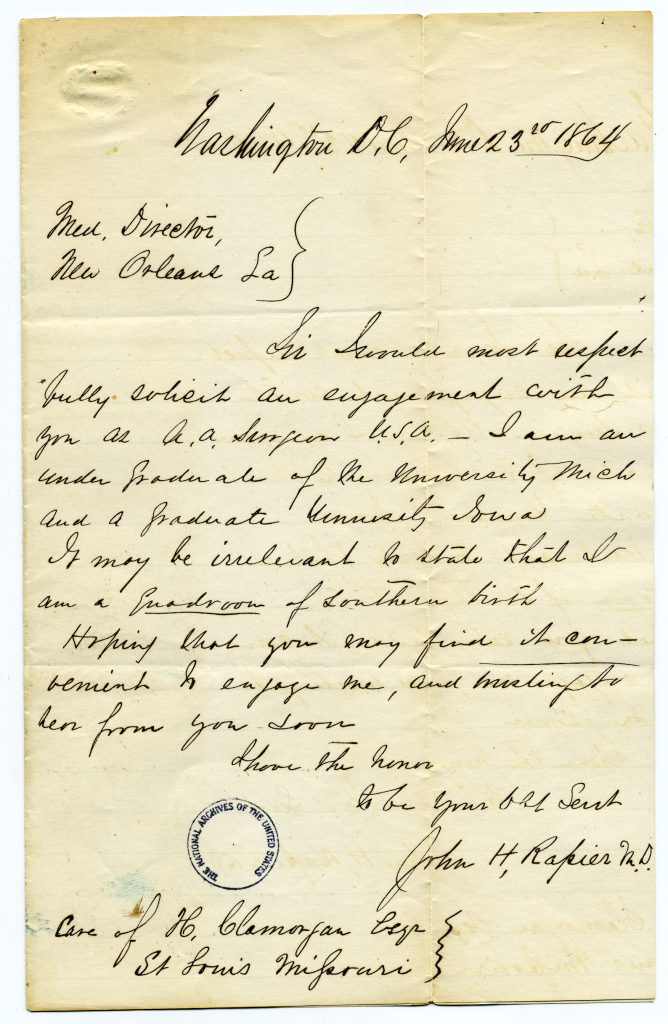 Washington D.C, June 23rd 1864
Med. Director,
New Orleans La
Sir I would most respect
fully solicit an engagement with
you as A.A. Surgeon U.S.A. – I am an
under graduate of the University Mich
and a graduate University Iowa
It may be irrelevant to state that I
am a Quadroon of Southern birth
Hoping that you may find it con–
venient to engage me, and trusting to
hear from you soon
I have the honor
to be your Obt Servt
John H, Rapier M.D.
THE NATIONAL ARCHIVES OF THE UNITED STATES
Care of H. Clamorgan Esqr
St Louis Missouri